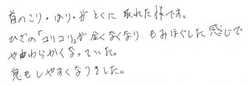 首のこり・はり・が とくに 取れた様です。
ひざの「コリコリ」が 全くなくなり ももほぐした感じで
やわらかくなっていた。
息もしやすくなりました。